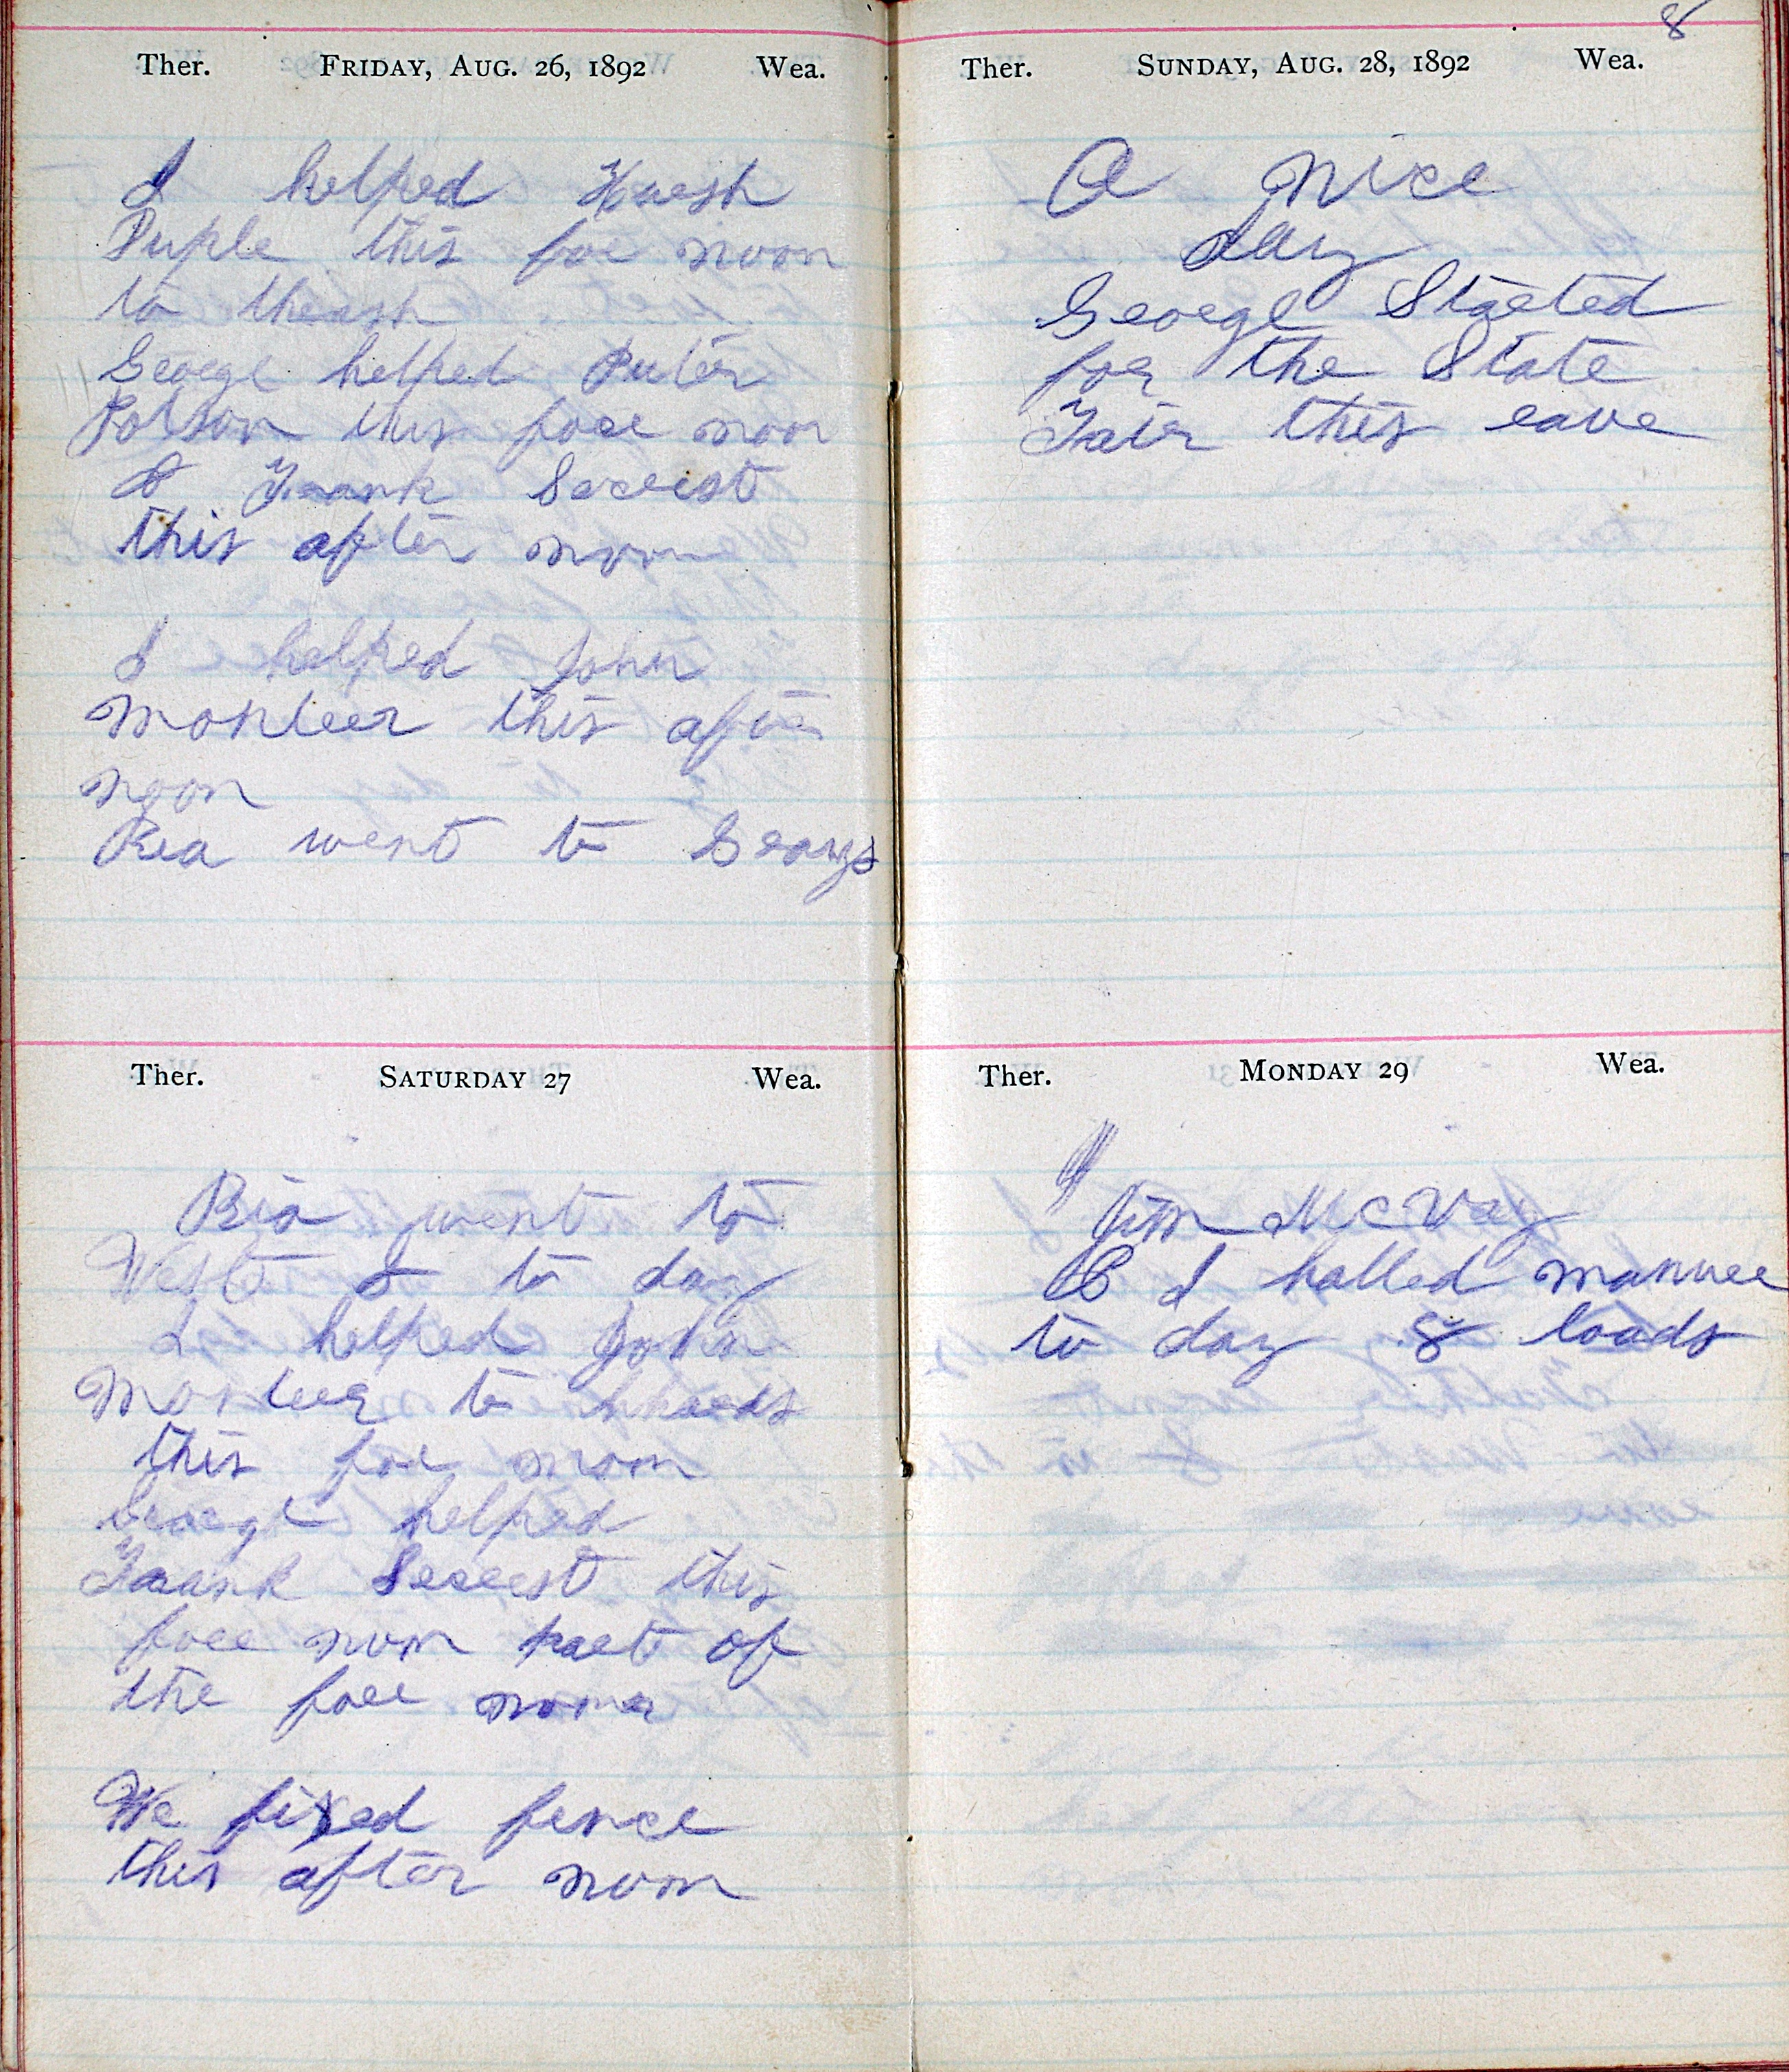 8
Ther. FRIDAY, AUG. 26, 1892 Wea.
I helped Hursh
Puple this for noon
to thrash
George helped Puter
Polson this fore noon
& Frank Secrist
this after noon
I helped John
Monteer this after
noon
Ria went to Grays
Ther. SATURDAY 27 Wea.
Ria went to
West & to day
I helped John
Monteer to thrash
this for noon
George helped
Frank Secrest this
fore noon part of
the fore noon
We fixed fence
this after noon
Ther. SUNDAY, AUG. 28, 1892 Wea.
A nice
day
George Started
for the State
Fair this eave
Ther. MONDAY 29 Wea.
Jim McVay
& I halled manure
to day 8 loads